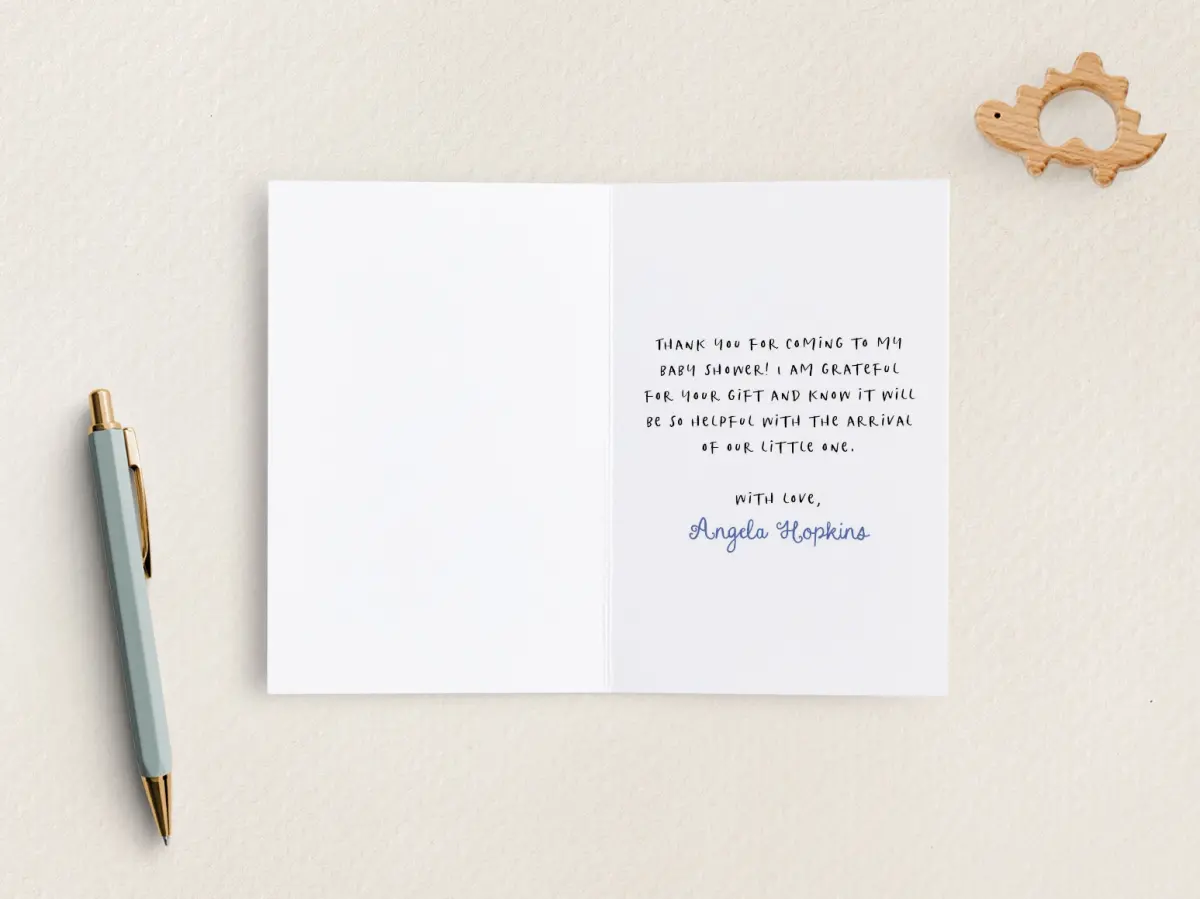 THANK YOU FOR COMING TO MY
BABY SHOWER! I AM GRATEFUL
FOR YOUR GIFT AND KNOW IT WILL
BE SO HELPFUL WITH THE ARRIVAL
OF OUR LITTLE ONE.
WITH LOVE,
Angela Hopkins